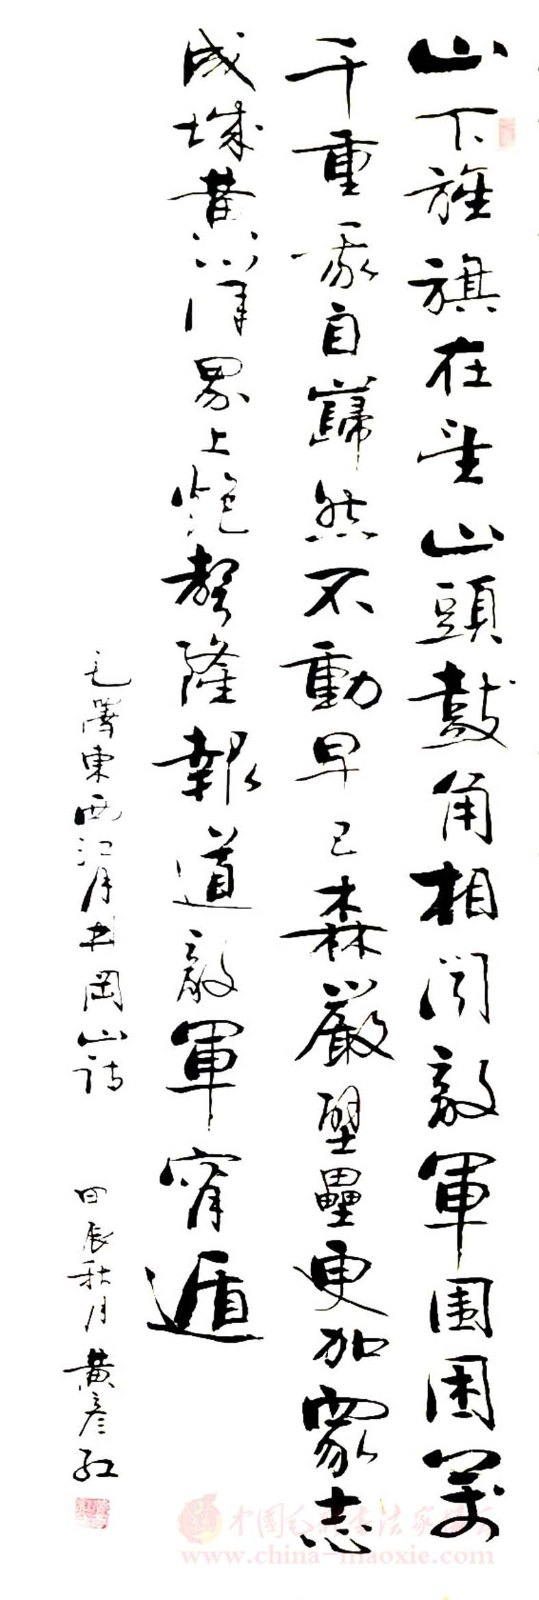 山下旌旗在望山頭鼓角相聞敵軍围困萬
千重我自巋然不動早已森嚴壁壘更加眾志
成城黄洋界上炮聲隆報道敵軍宵遁
毛澤東西江月井岡山詩 甲辰秋月黄彦红
www.china-maoxie.com